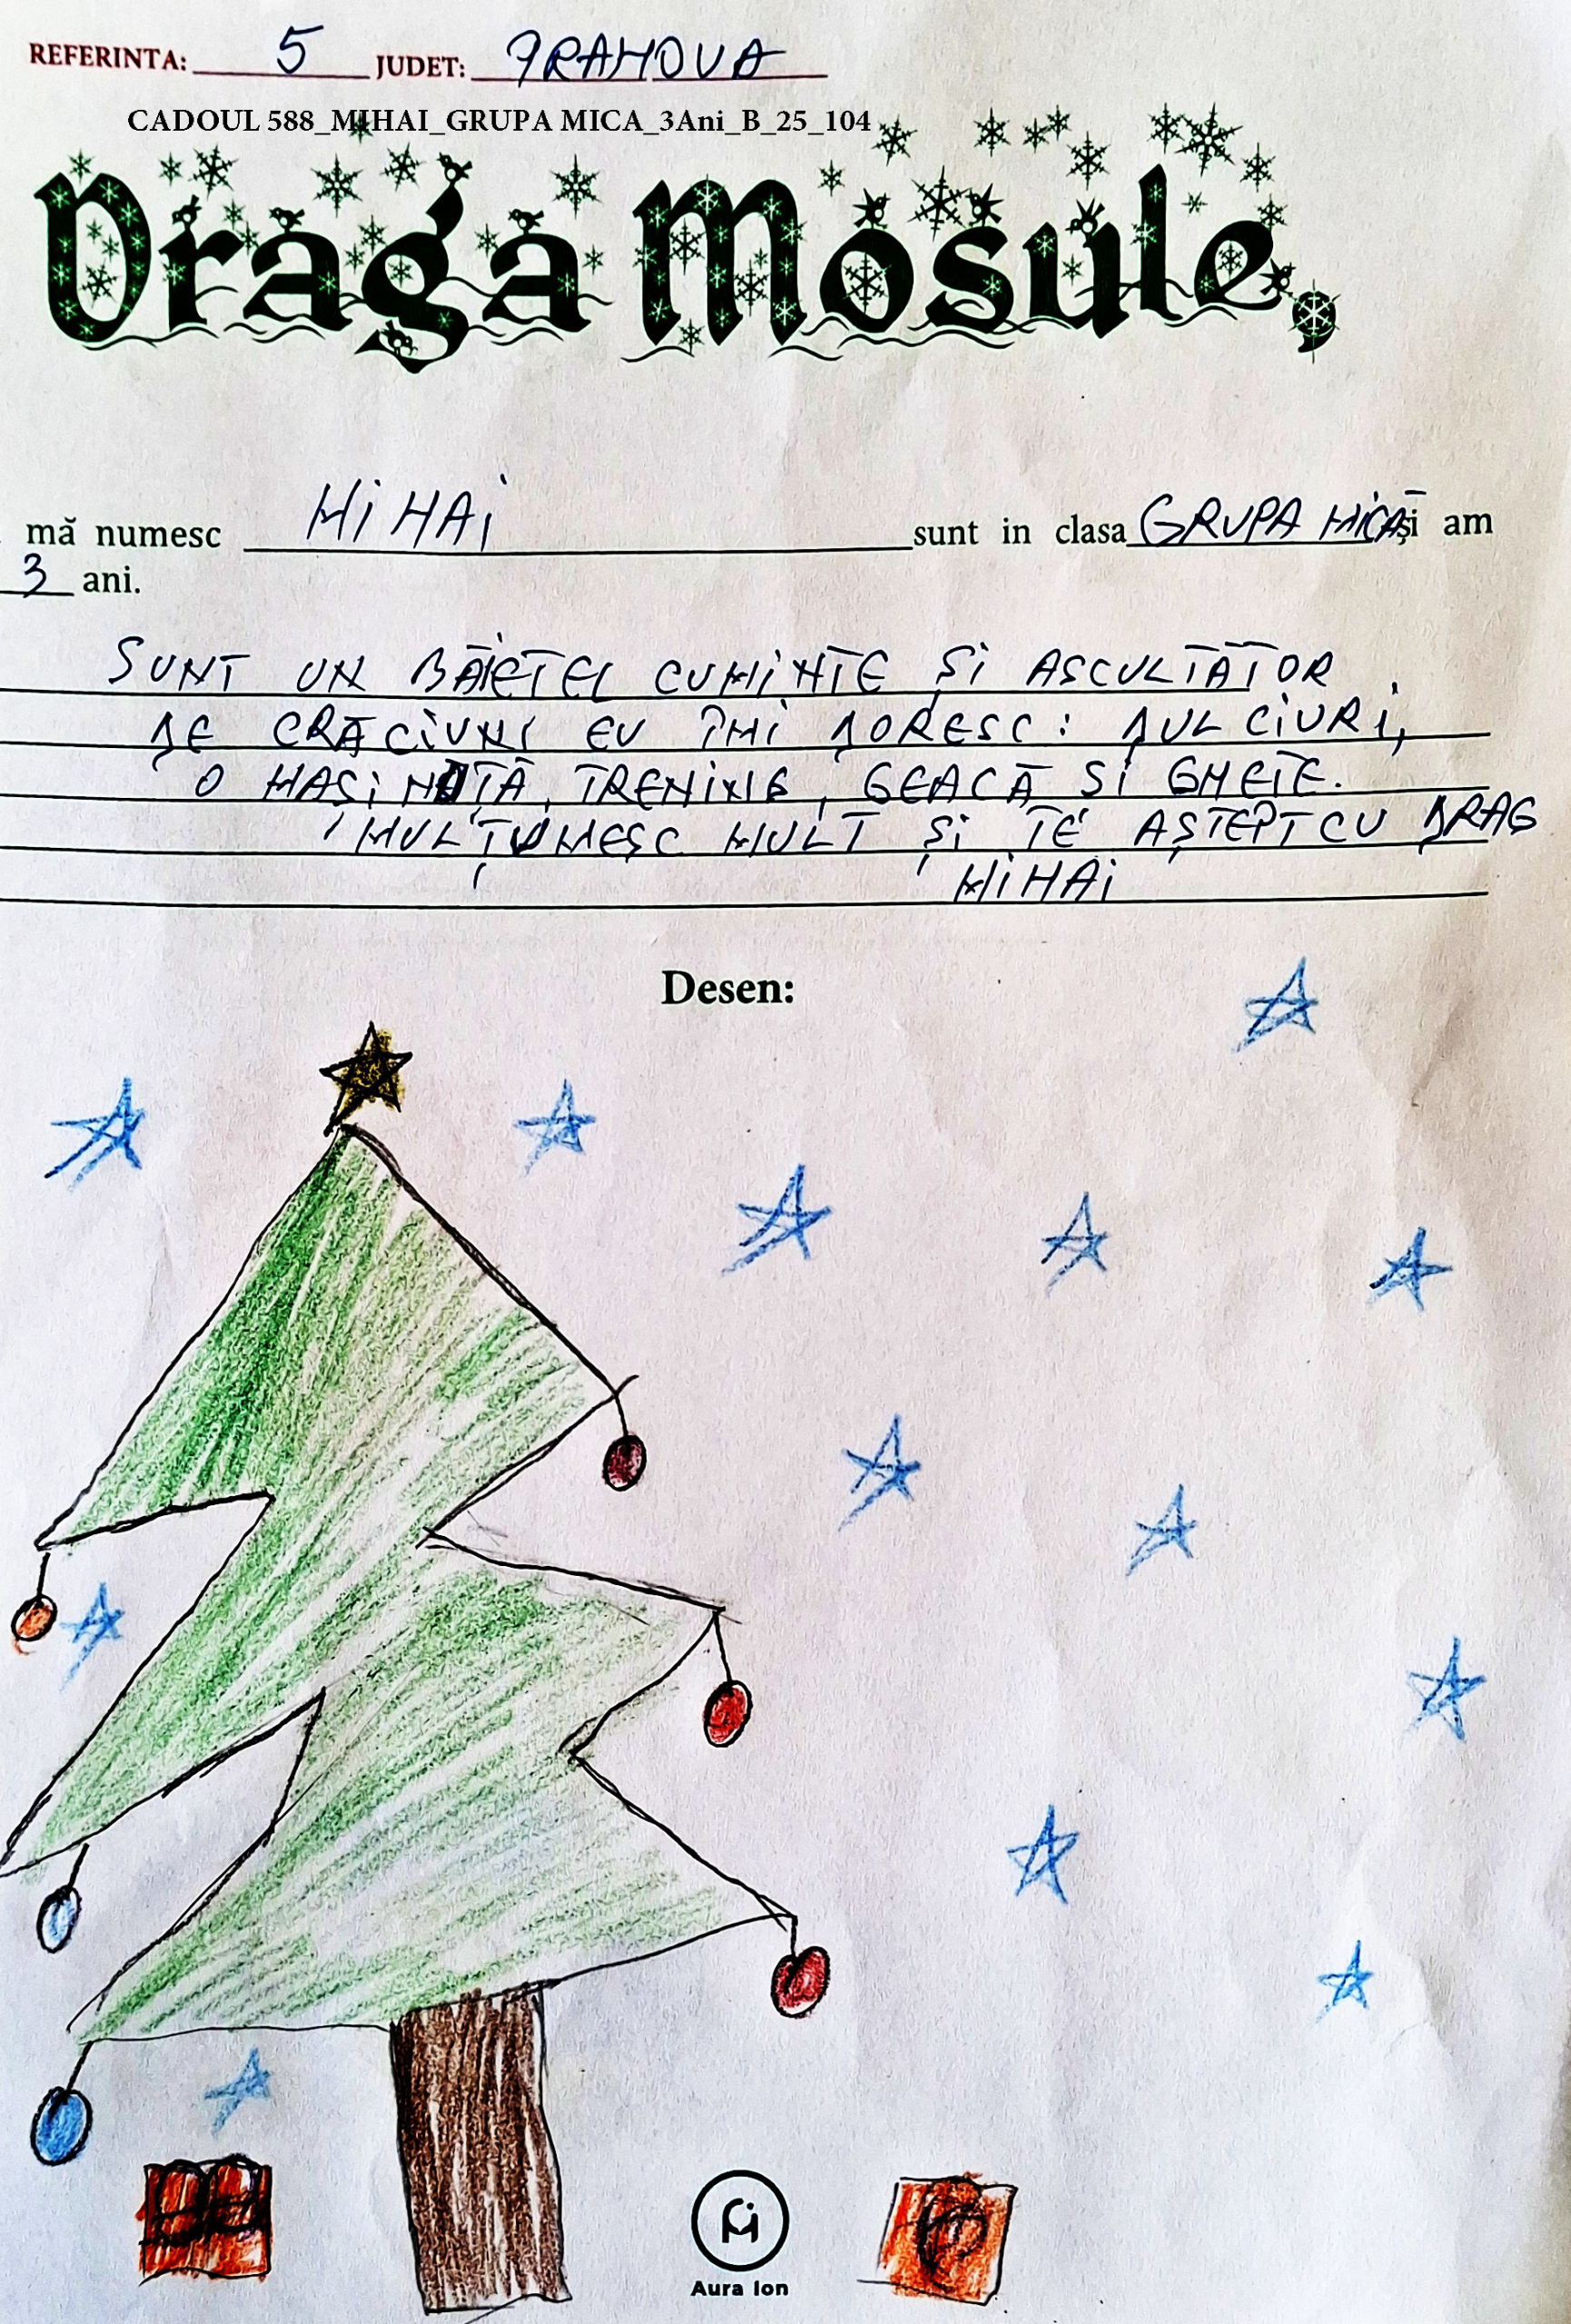 REFERINTA: 5 JUDET: PRAHOVA
CADOUL 588_MIHAI_GRUPA MICA_3Ani_B_25_104
Draga Mosule,
mă numesc MIHAI sunt in clasa GRUPA MICĂ și am
3 ani.
SUNT UN BĂIEȚEL CUMINTE ȘI ASCULTĂTOR
DE CRĂCIUN EU ÎMI DORESC: DULCIURI,
O MAȘINUȚĂ, TRENING, GEACĂ SI GHETE.
MULȚUMESC MULT ȘI TE AȘTEPT CU DRAG
MIHAI
Desen:
Aura Ion